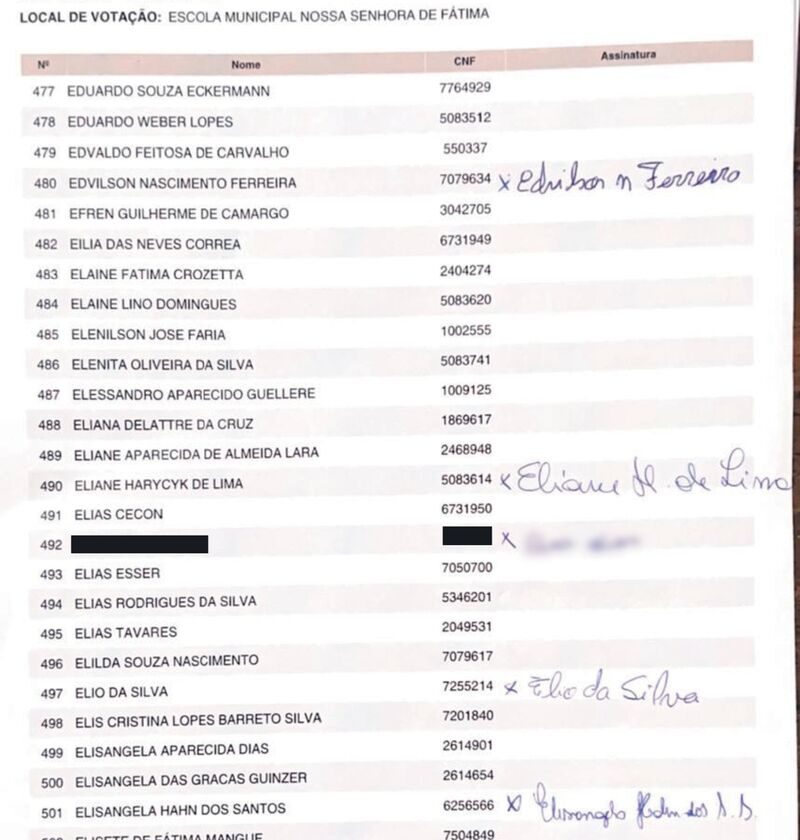 LOCAL DE VOTAÇÃO: ESCOLA MUNICIPAL NOSSA SENHORA DE FÁTIMA
Nº Nome CNF Assinatura
477 EDUARDO SOUZA ECKERMANN 7764929
478 EDUARDO WEBER LOPES 5083512
479 EDVALDO FEITOSA DE CARVALHO 550337
480 EDVILSON NASCIMENTO FERREIRA 7079634 x Edvilson n Ferreira
481 EFREN GUILHERME DE CAMARGO 3042705
482 EILIA DAS NEVES CORREA 6731949
483 ELAINE FATIMA CROZETTA 2404274
484 ELAINE LINO DOMINGUES 5083620
485 ELENILSON JOSE FARIA 1002555
486 ELENITA OLIVEIRA DA SILVA 5083741
487 ELESSANDRO APARECIDO GUELLERE 1009125
488 ELIANA DELATTRE DA CRUZ 1869617
489 ELIANE APARECIDA DE ALMEIDA LARA 2468948
490 ELIANE HARYCYK DE LIMA 5083614 x Eliane H. de Lima
491 ELIAS CECON 6731950
492 x
493 ELIAS ESSER 7050700
494 ELIAS RODRIGUES DA SILVA 5346201
495 ELIAS TAVARES 2049531
496 ELILDA SOUZA NASCIMENTO 7079617
497 ELIO DA SILVA 7255214 x Elio da Silva
498 ELIS CRISTINA LOPES BARRETO SILVA 7201840
499 ELISANGELA APARECIDA DIAS 2614901
500 ELISANGELA DAS GRACAS GUINZER 2614654
501 ELISANGELA HAHN DOS SANTOS 6256566 x Elisangela Hahn dos S.
ELISETE DE FÁTIMA MANGUE 7504849